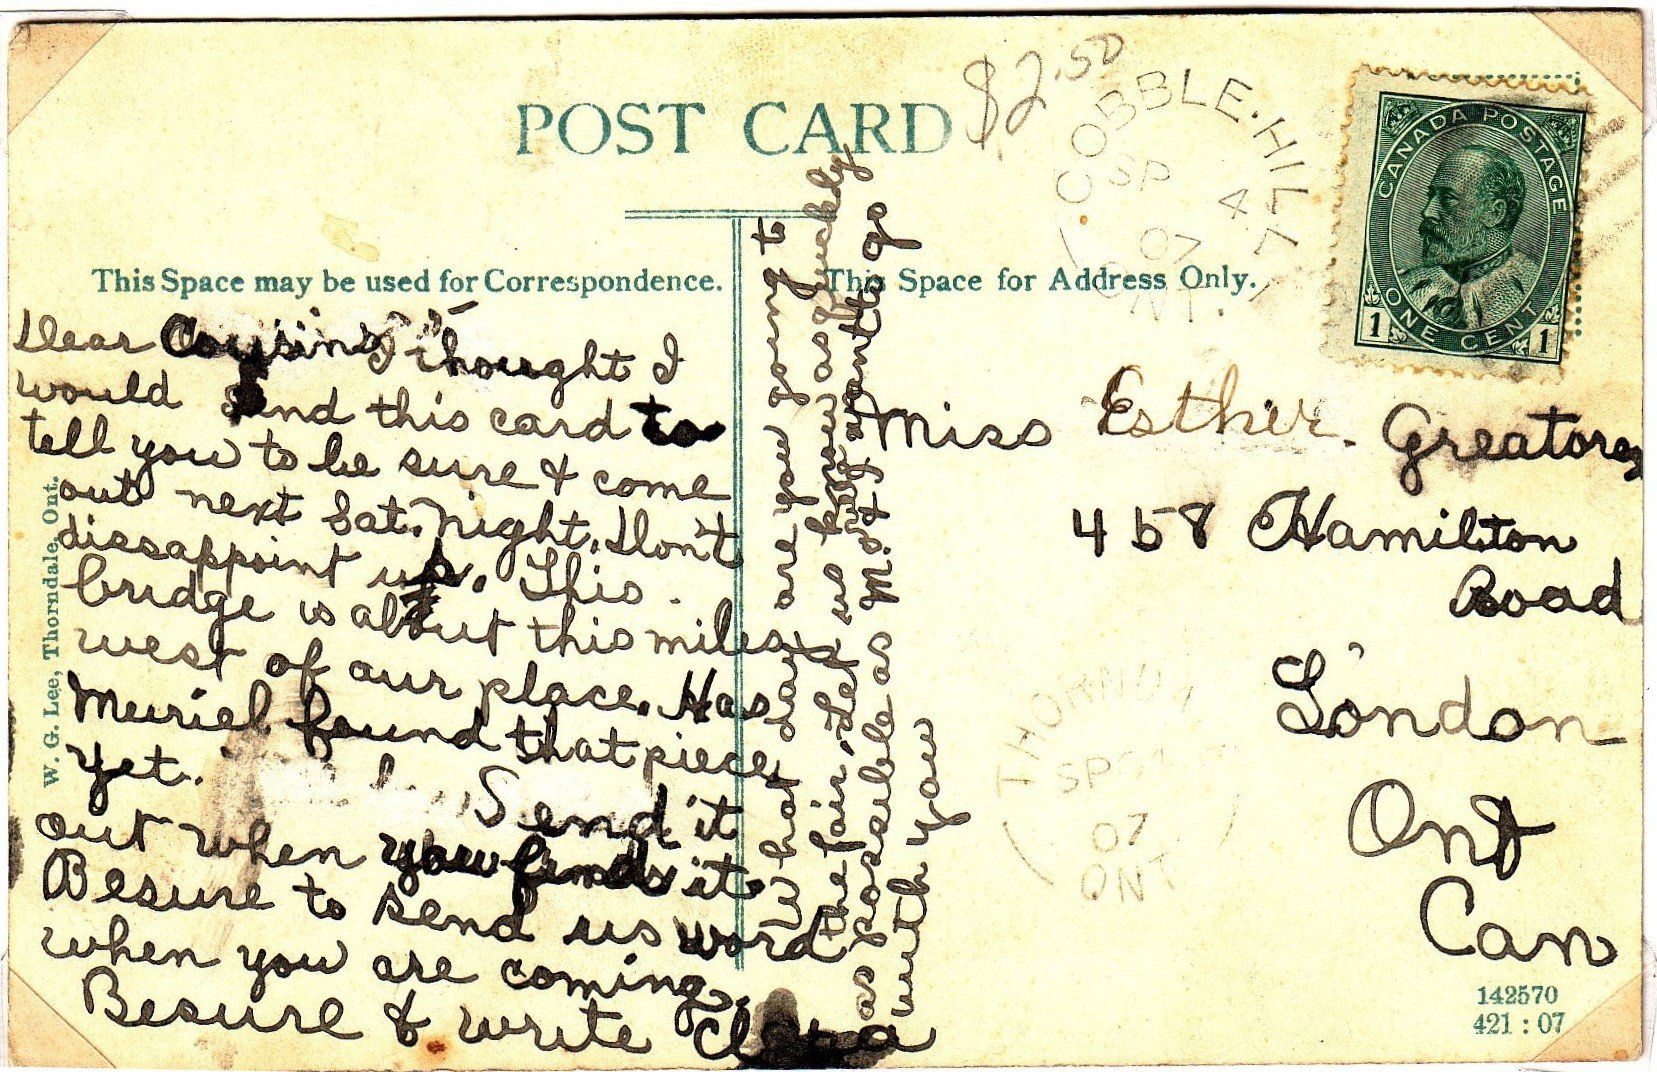 $2.50
POST CARD
COBBLE·HILL
SP 4
07
ONT.
CANADA POSTAGE
1 ONE CENT 1
This Space may be used for Correspondence.
This Space for Address Only.
Dear Cousins I thought I
would send this card to
tell you to be sure & come
out next Sat. night. Don't
dissappoint us. This
bridge is about this miles
west of our place. Has
Muriel found that piece
yet.
Send it
out when you finds it.
Besure to send us word
when you are coming.
Besure & write Clara
What day are you going to
the fair. Let us know as quickly
as possible as M. & I want to go
with you
Miss Esther. Greatorex
458 Hamilton
Road
London
Ont
Can
THORNDA
SP
07
ONT
W. G. Lee, Thorndale, Ont.
142570
421 : 07